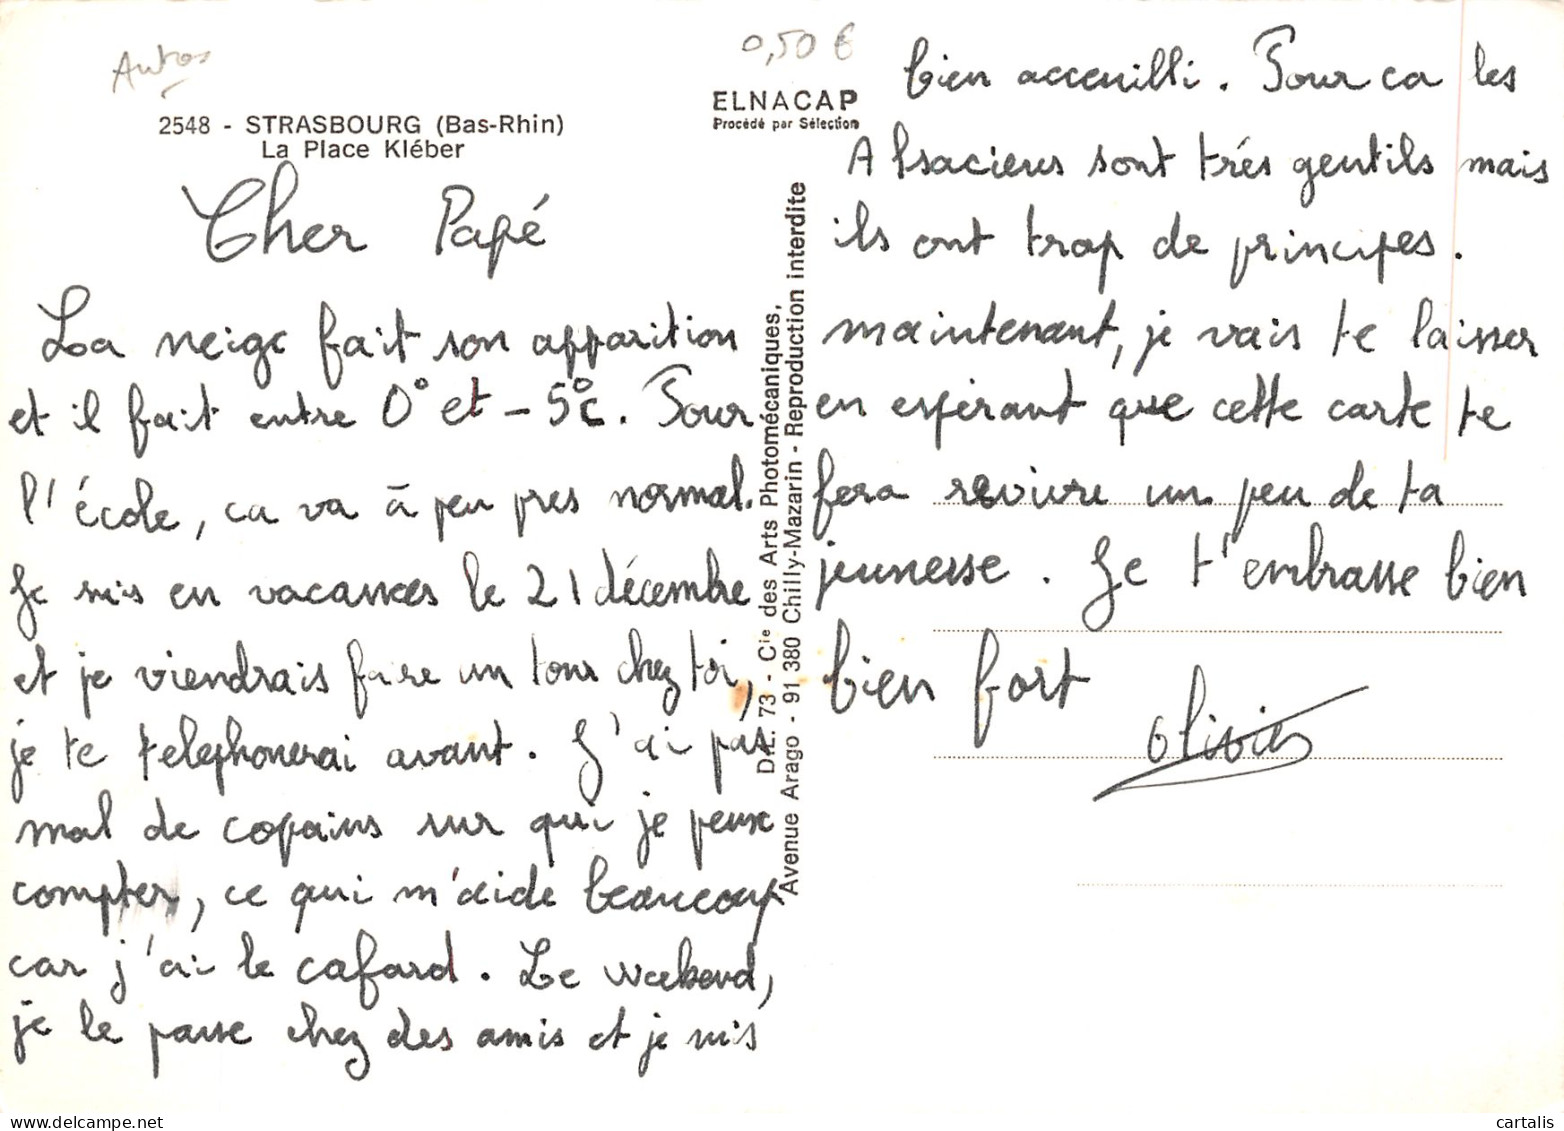 Autos
0,50 €
2548 - STRASBOURG (Bas-Rhin)
La Place Kléber
ELNACAP
Procédé par Sélection
Cher Papé
La neige fait son apparition
et il fait entre 0° et - 5°c. Pour
l'école, ca va à peu pres normal.
Je suis en vacances le 21 décembre
et je viendrais faire un tour chez toi,
je te telephonerai avant. J'ai pas
mal de copains sur qui je peux
compter, ce qui m'aide beaucoup
car j'ai le cafard. Le weekend,
je le passe chez des amis et je suis
D.L. 73 - Cie des Arts Photomécaniques,
Avenue Arago - 91 380 Chilly-Mazarin - Reproduction interdite
bien acceuilli. Pour ca les
Alsaciens sont trés gentils mais
ils ont trop de principes.
maintenant, je vais te laisser
en espérant que cette carte te
fera revivre un peu de ta
jeunesse. Je t'embrasse bien
bien fort
Olivier
www.cartalis.com